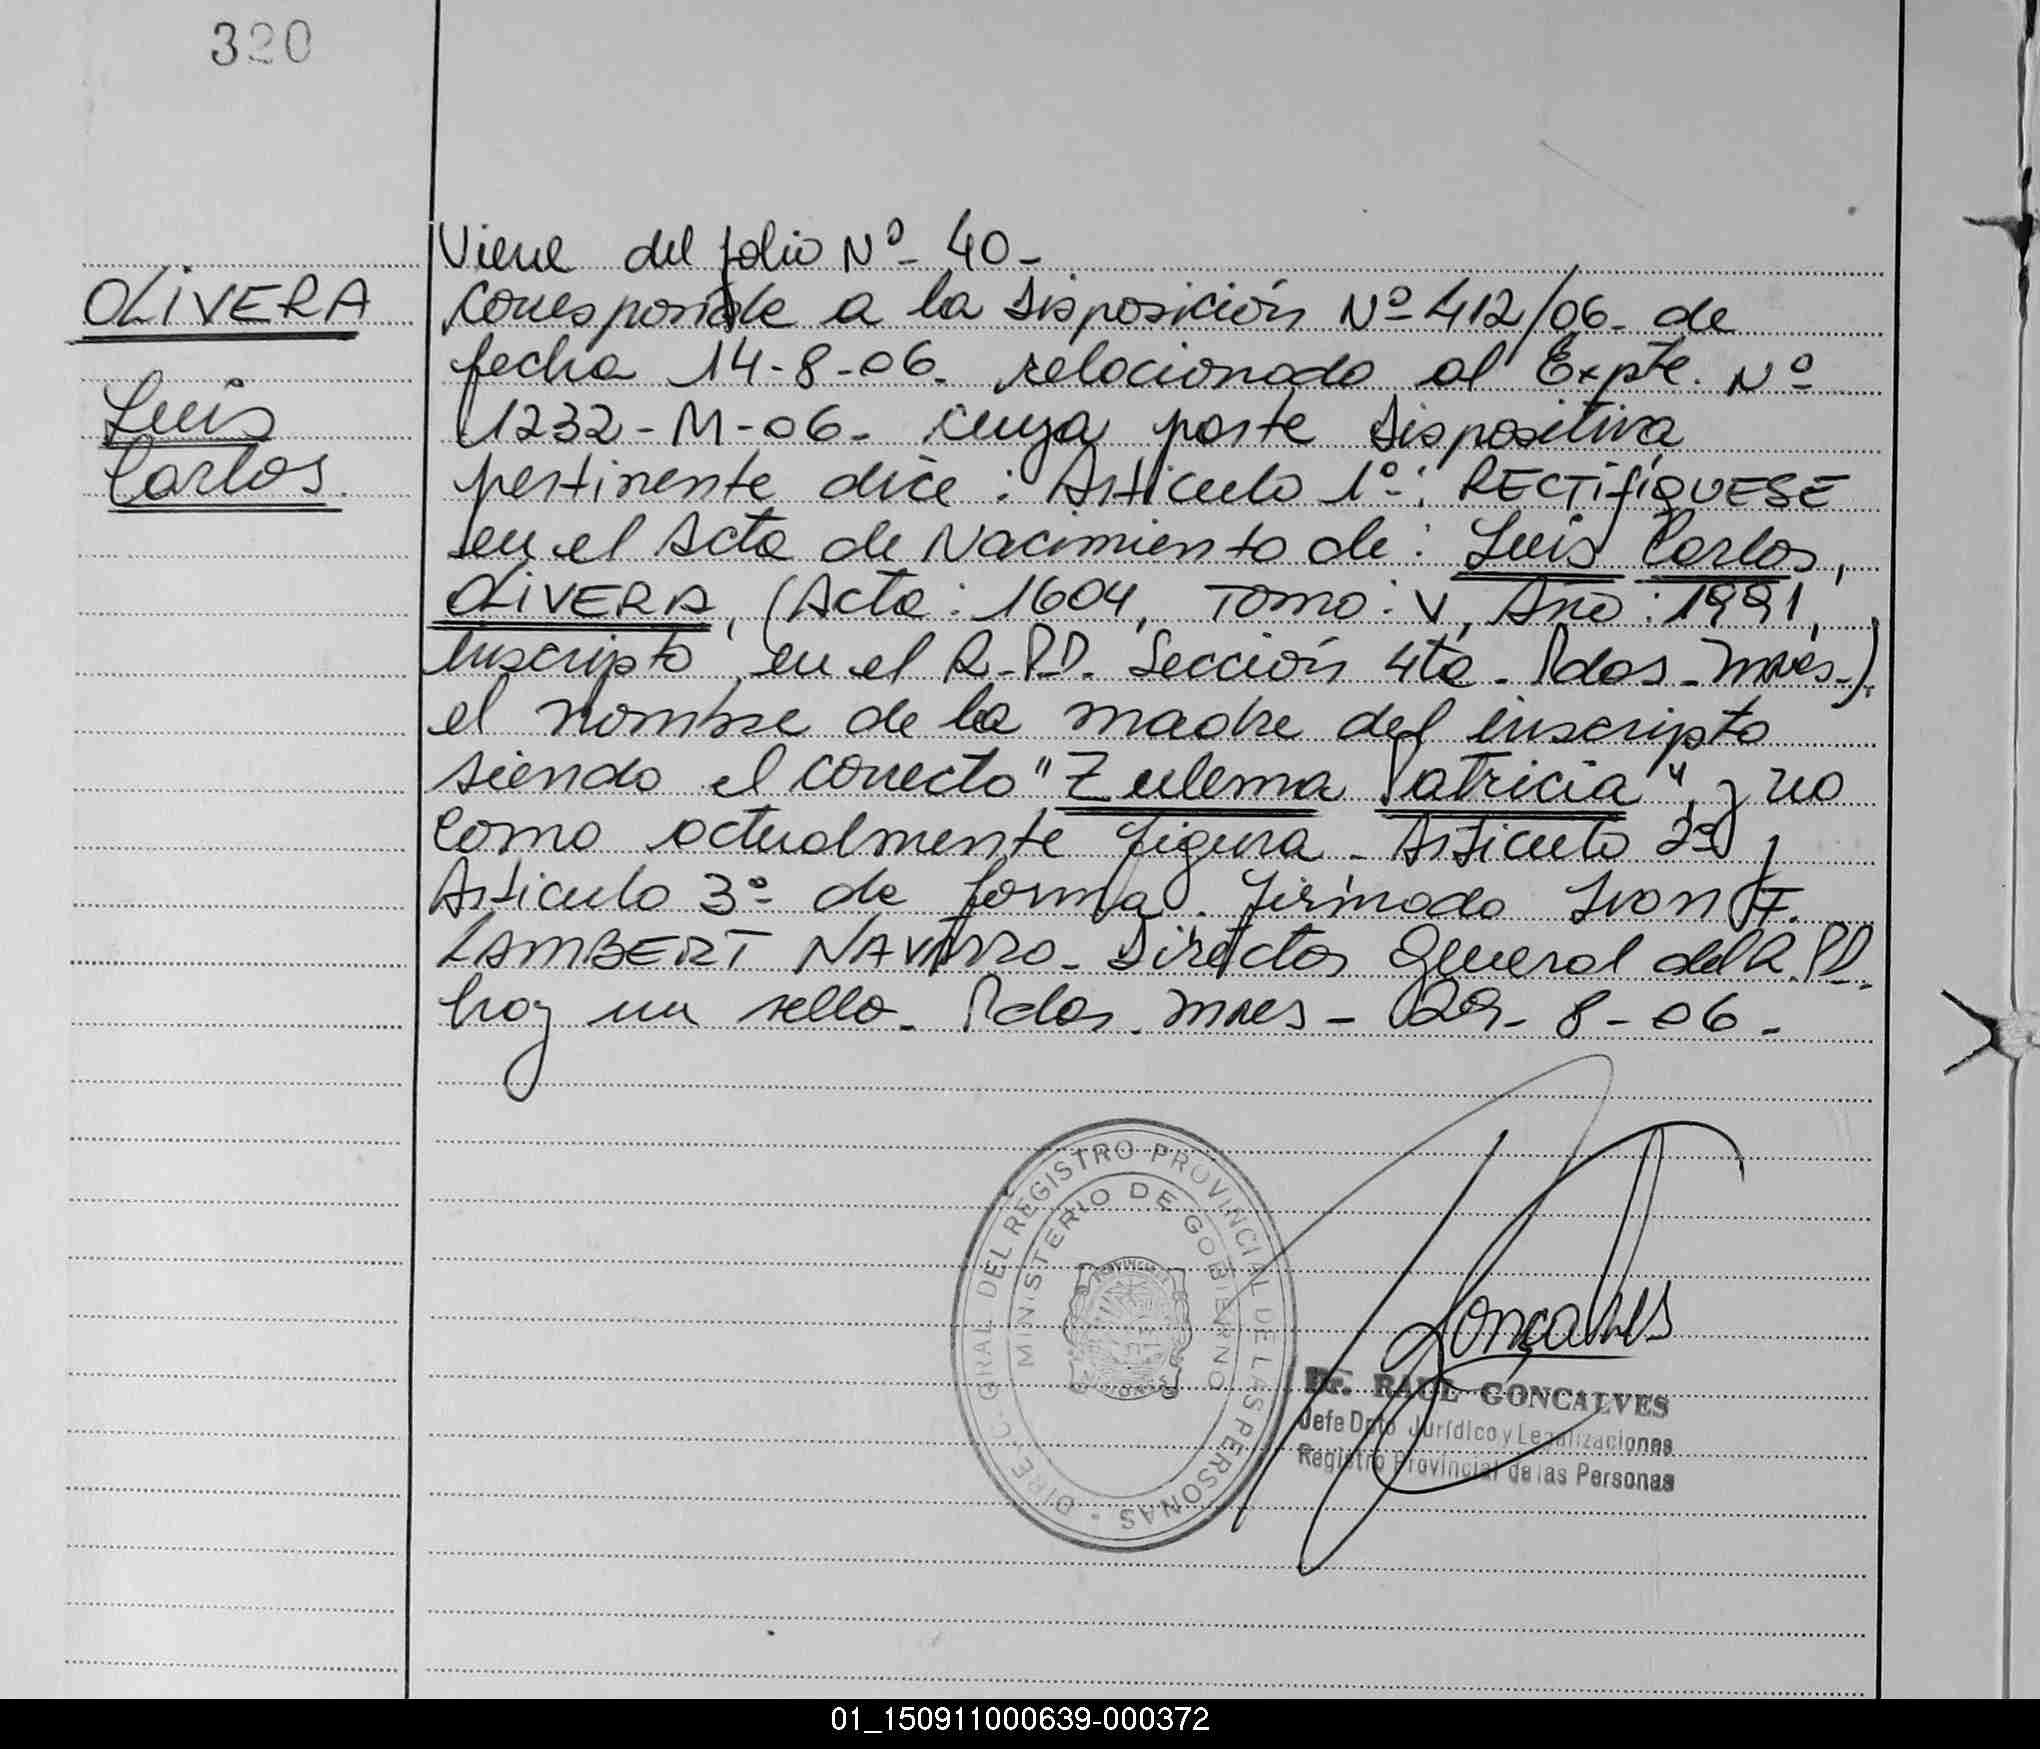 320
Viene del folio Nº- 40-
OLIVERA
Corresponde a la Disposición Nº 412/06- de
fecha 14-8-06- relacionado al Expte. Nº
Luis
1232-M-06- cuya parte Dispositiva
Carlos.
pertinente dice: Artículo 1º-: RECTIFIQUESE
en el Acta de Nacimiento de: Luis Carlos,
OLIVERA, (Acta: 1604, Tomo: V, Año: 1991,
inscripto en el R.P.P. Sección 4ta- Pdas- Mnes-).
el nombre de la madre del inscripto
siendo el correcto "Zulema Patricia", y no
como actualmente figura- Artículo 2º y
Artículo 3º de forma. Firmado Ivon F.
LAMBERT NAVARRO- Director General del R.P.P.
hay un sello- Pdas. Mnes- 29-8-06-
DIRECC. GRAL. DEL REGISTRO PROVINCIAL DE LAS PERSONAS
MINISTERIO DE GOBIERNO
Goncalves
Dr. RAUL GONCALVES
Jefe Dpto Jurídico y Legalizaciones
Registro Provincial de las Personas
01_150911000639-000372